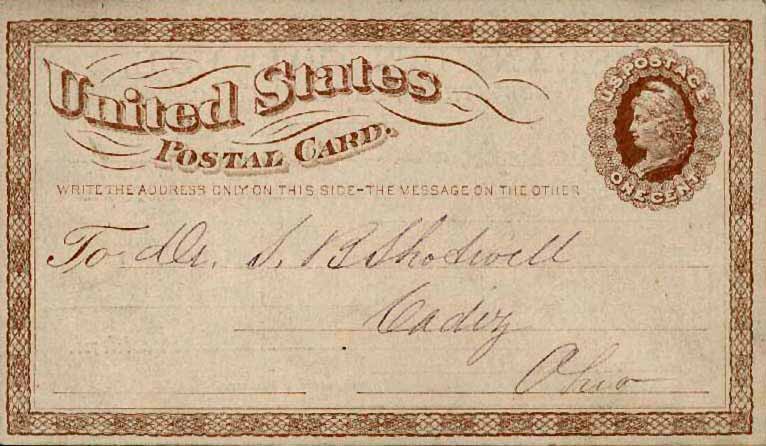 United States
POSTAL CARD.
U.S. POSTAGE
ONE CENT
WRITE THE ADDRESS ONLY ON THIS SIDE-THE MESSAGE ON THE OTHER
To Dr. S. B Shotwell
Cadiz
Ohio